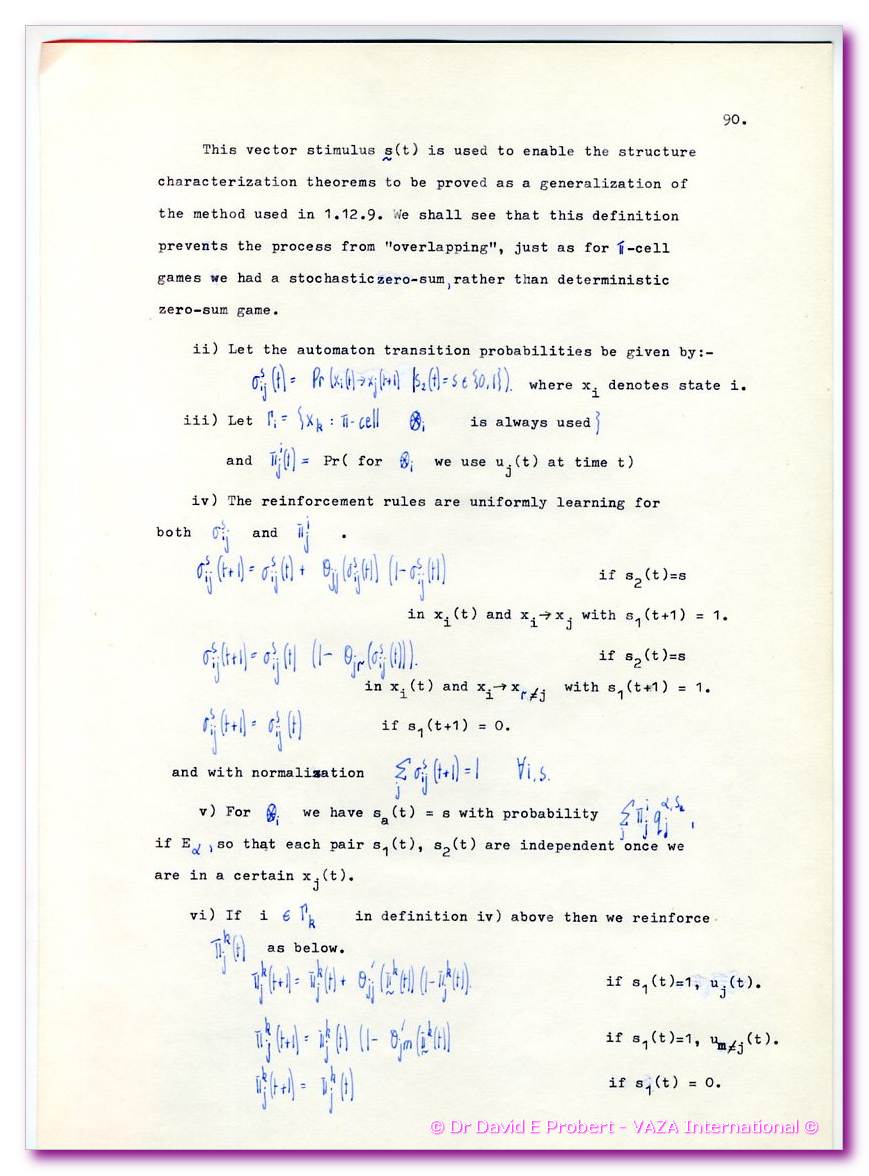 90.
This vector stimulus s(t) is used to enable the structure
characterization theorems to be proved as a generalization of
the method used in 1.12.9. We shall see that this definition
prevents the process from "overlapping", just as for π-cell
games we had a stochastic zero-sum, rather than deterministic
zero-sum game.
ii) Let the automaton transition probabilities be given by:-
σᵢⱼˢ(t) = Pr(xᵢ(t)→xⱼ(t+1) |s₂(t)=s ε {0,1}). where xᵢ denotes state i.
iii) Let Γᵢ = {xₖ : π-cell ⊗ᵢ is always used}
and πⱼⁱ(t) = Pr( for ⊗ᵢ we use uⱼ(t) at time t)
iv) The reinforcement rules are uniformly learning for
both σᵢⱼˢ and πⱼⁱ .
σᵢⱼˢ(t+1) = σᵢⱼˢ(t) + θⱼⱼ(σᵢⱼˢ(t)) (1-σᵢⱼˢ(t)) if s₂(t)=s
in xᵢ(t) and xᵢ→xⱼ with s₁(t+1) = 1.
σᵢⱼˢ(t+1) = σᵢⱼˢ(t) (1- θⱼᵣ(σᵢⱼˢ(t))). if s₂(t)=s
in xᵢ(t) and xᵢ→x_r≠j with s₁(t+1) = 1.
σᵢⱼˢ(t+1) = σᵢⱼˢ(t) if s₁(t+1) = 0.
and with normalization Σⱼ σᵢⱼˢ(t+1) = 1 ∀i,s.
v) For ⊗ᵢ we have sₐ(t) = s with probability Σⱼ πⱼⁱ qⱼ^α,sₐ ,
if E_α , so that each pair s₁(t), s₂(t) are independent once we
are in a certain xⱼ(t).
vi) If i ∈ Γₖ in definition iv) above then we reinforce
πⱼᵏ(t) as below.
πⱼᵏ(t+1) = πⱼᵏ(t) + θ'ⱼⱼ(πᵏ(t)) (1-πⱼᵏ(t)). if s₁(t)=1, uⱼ(t).
πⱼᵏ(t+1) = πⱼᵏ(t) (1- θ'ⱼₘ(πᵏ(t)) if s₁(t)=1, u_m≠j(t).
πⱼᵏ(t+1) = πⱼᵏ(t) if s₁(t) = 0.
© Dr David E Probert - VAZA International ©